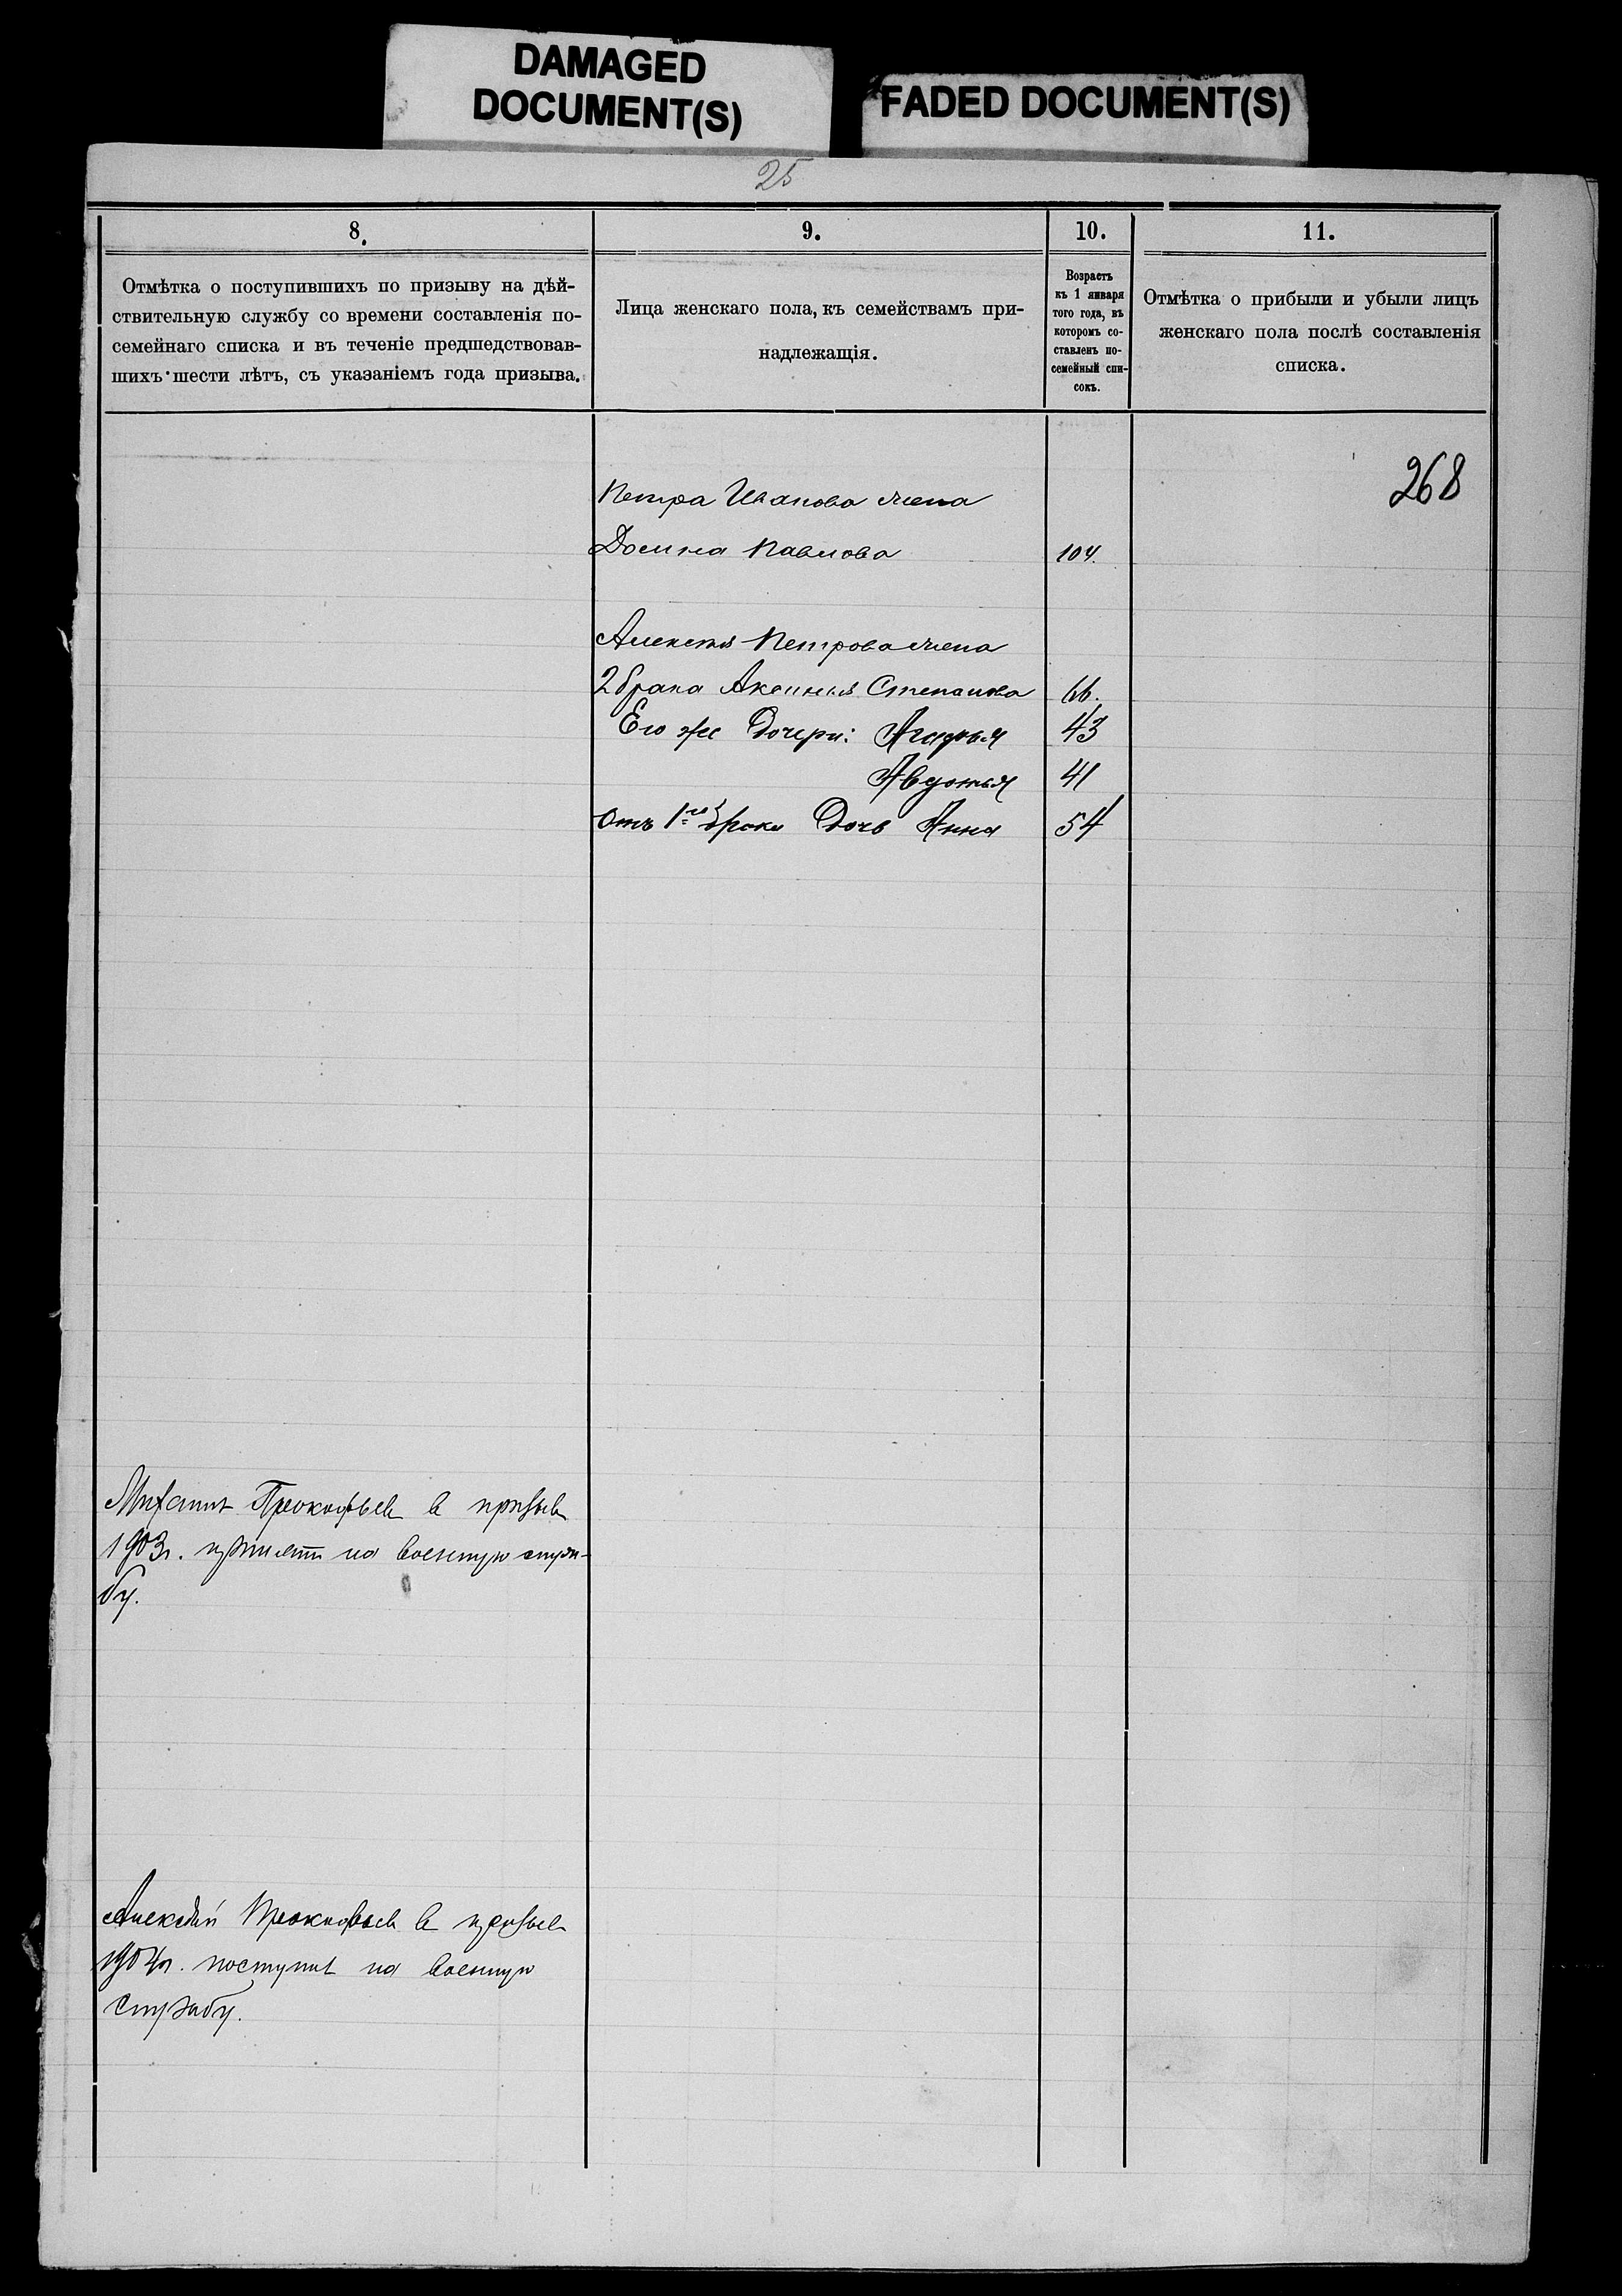 DAMAGED
DOCUMENT(S)
FADED DOCUMENT(S)
25
8.
Отмѣтка о поступившихъ по призыву на дѣй-
ствительную службу со времени составленія по-
семейнаго списка и въ теченіе предшедствовав-
шихъ шести лѣтъ, съ указаніемъ года призыва.
9.
Лица женскаго пола, къ семействамъ при-
надлежащія.
10.
Возрастъ
къ 1 января
того года, въ
которомъ со-
ставленъ по-
семейный спи-
сокъ.
11.
Отмѣтка о прибыли и убыли лицъ
женскаго пола послѣ составленія
списка.
268
Петра Иванова жена
Домна Павлова 104.
Алексѣя Петрова жена
2 брака Аксинья Степанова 66.
Его же Дочери: 43
Авдотья 41
Отъ 1го брака Дочь Анна 54
Михаилъ Прокофьев в призыв
1903г. принят на военную служ-
бу.
Алексѣй Прокофьев в призыв
1904г. поступил на военную
службу.